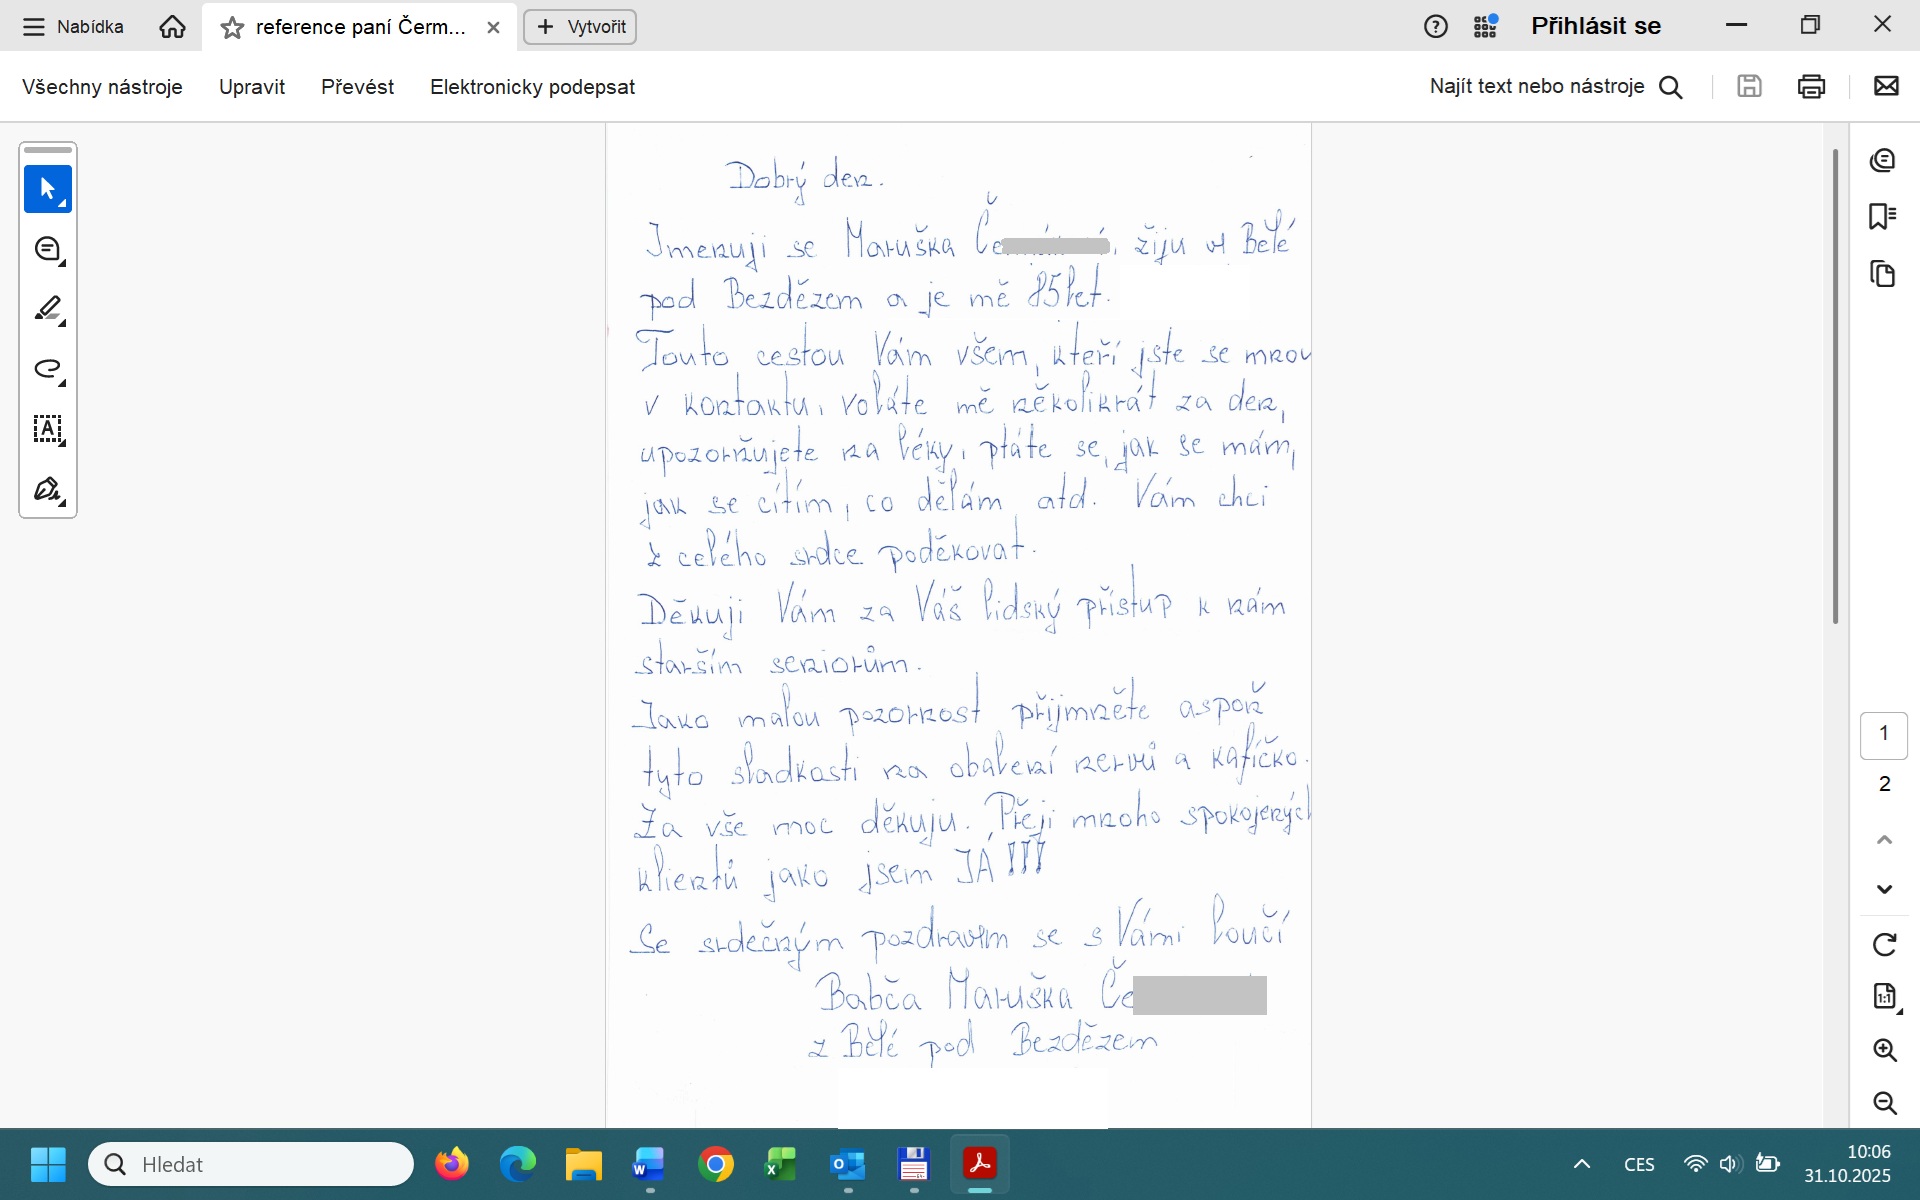 Nabídka
reference paní Čerm...
Vytvořit
Přihlásit se
Všechny nástroje
Upravit
Převést
Elektronicky podepsat
Najít text nebo nástroje
Dobrý den.
Jmenuji se Maruška Če, žiju v Bělé
pod Bezdězem a je mě 85 let.
Touto cestou Vám všem, kteří jste se mnou
v kontaktu, voláte mě několikrát za den,
upozorňujete na léky, ptáte se, jak se mám,
jak se cítím, co dělám atd. Vám chci
z celého srdce poděkovat.
Děkuji Vám za Váš lidský přístup k nám
starším seniorům.
Jako malou pozornost přijmněte aspoň
tyto sladkosti na obalení nervů a kafíčko.
Za vše moc děkuju. Přeji mnoho spokojených
klientů jako jsem JÁ!!!
Se srdečným pozdravem se s Vámi loučí
Babča Maruška Če
z Bělé pod Bezdězem
1
2
1:1
Hledat
CES
10:06
31.10.2025